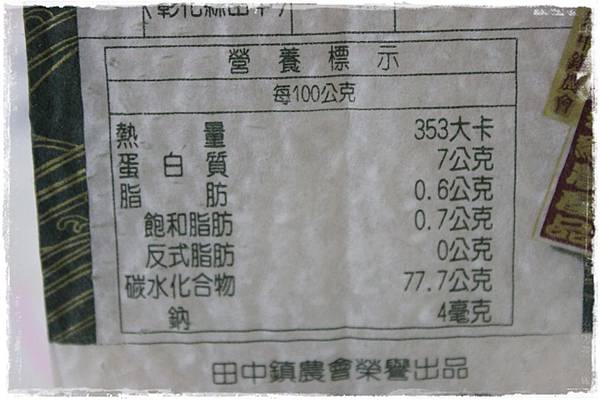 (彰化縣田中)
營養標示
每100公克
熱量 353大卡
蛋白質 7公克
脂肪 0.6公克
飽和脂肪 0.7公克
反式脂肪 0公克
碳水化合物 77.7公克
鈉 4毫克
田中鎮農會榮譽出品
中鎮農會